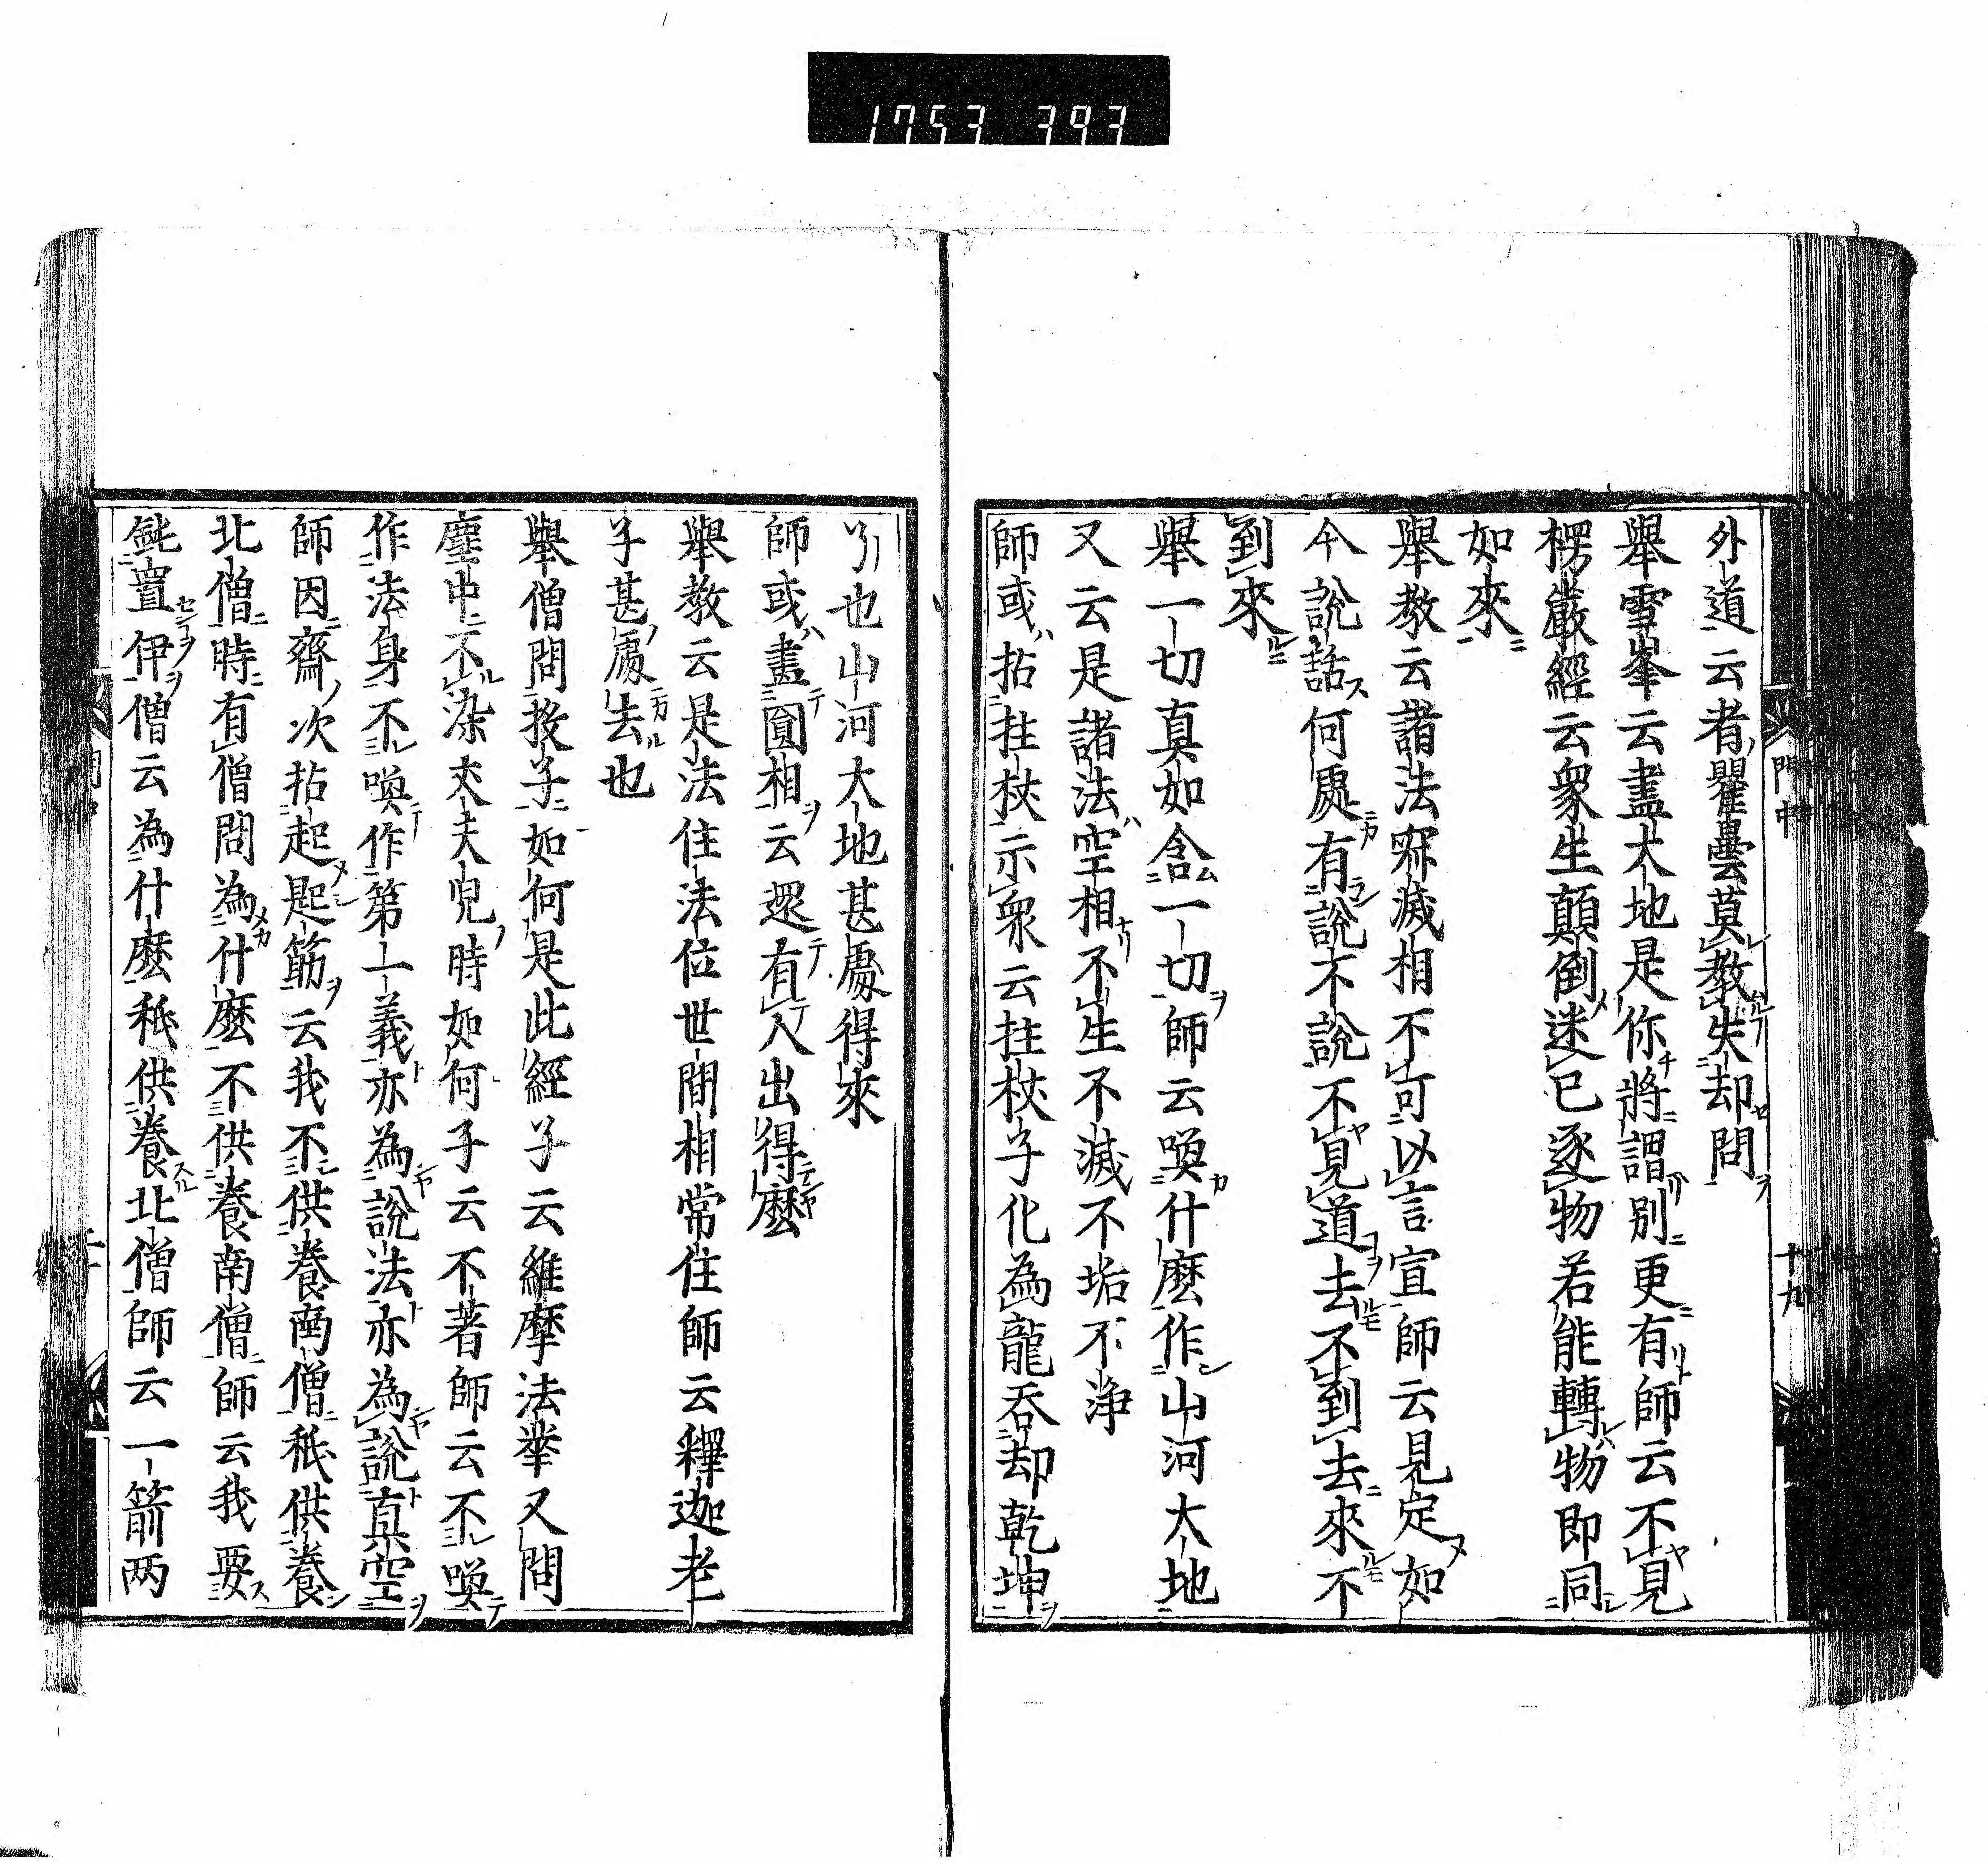 1753 393
外道云者瞿曇莫教失却問
舉雪峯云盡大地是你將謂別更有師云不見
楞嚴經云衆生顛倒迷已逐物若能轉物即同
如來
舉教云諸法寂滅相不可以言宣師云見定如
今說話何處有說不說不見道去不到去來不
到來
舉一切真如含一切師云喚什麼作山河大地
又云是諸法空相不生不滅不垢不浄
師或拈拄杖示衆云拄杖子化為龍吞却乾坤
了也山河大地甚處得來
師或畫圓相云還有人出得麼
舉教云是法住法位世間相常住師云釋迦老
子甚處去也
舉僧問投子如何是此經子云維摩法華又問
塵中不染丈夫兒時如何子云不著師云不喚
作法身不喚作第一義亦為說法亦為說真空
師因齋次拈起匙筯云我不供養南僧秖供養
北僧時有僧問為什麼不供養南僧師云我要
鈍置伊僧云為什麼秖供養北僧師云一箭两
門中
十九